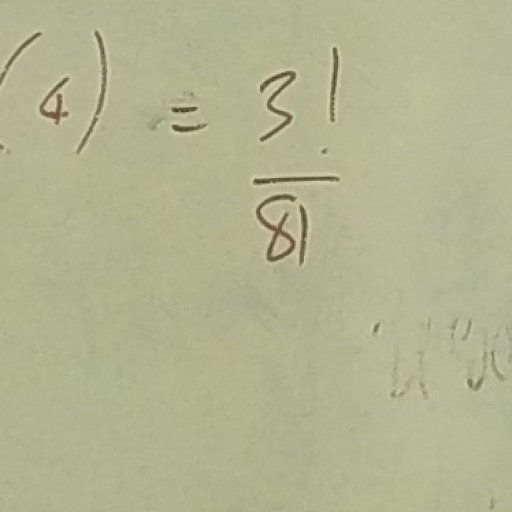 (4) = 3!
81